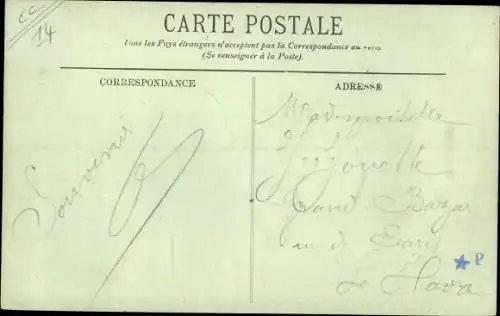 CC
14
CARTE POSTALE
Tous les Pays étrangers n'acceptent pas la Correspondance au
(Se renseigner à la Poste).
CORRESPONDANCE
ADRESSE
Souvenir
Mademoiselle
Grand Bazar
Paris
Le Havre
★ P